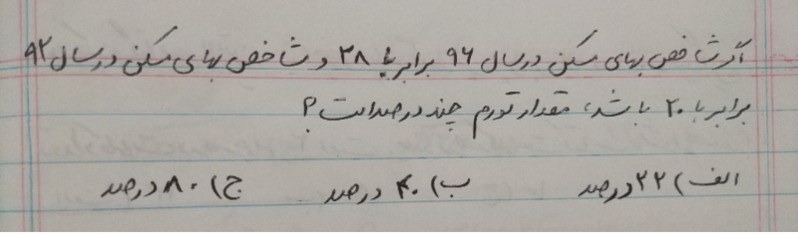 اگر شاخص بهای مسکن در سال ۹۶ برابر با ۲۸ و شاخص بهای مسکن در سال ۹۲
برابر با ۲۰ باشد، مقدار تورم چند درصد است؟
الف) ۲۲ درصد ب) ۴۰ درصد ج) ۸۰ درصد